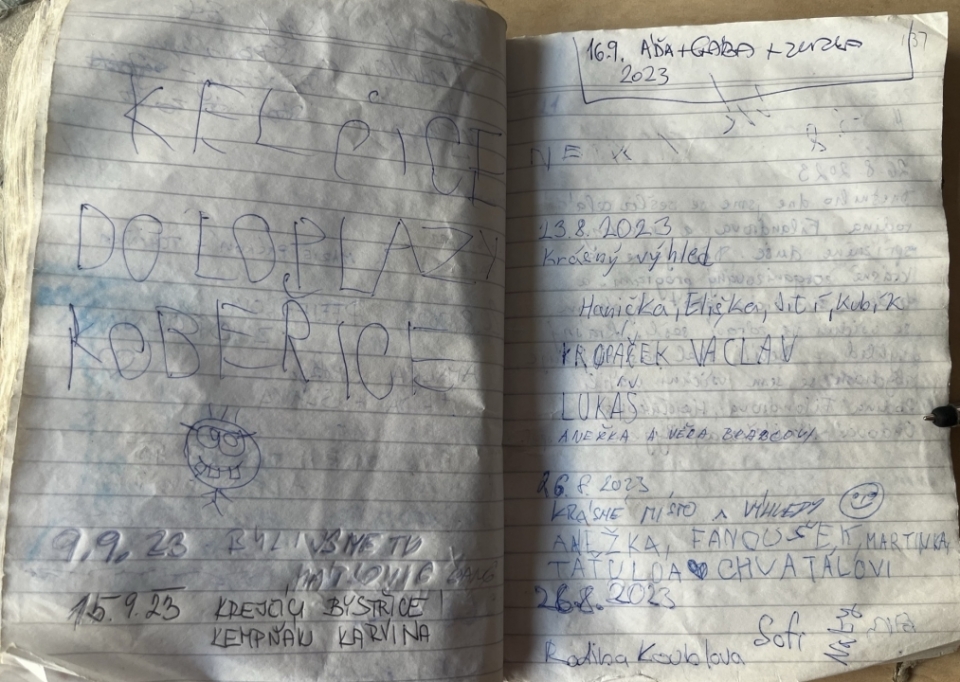 KELČICE
DOLOPLAZY
KOBEŘICE
9.9. 23 BYLI JSME TU
15.9.23 KREJČÍ BYSTŘICE
KEMPŇAU KARVINA
16.9. AĎA+GABA+ZUZKA
2023
13.8.2023
Krásný výhled
Hanička, Eliška, Jiří, Kubík
KROPÁČEK VACLAV
LUKÁŠ
ANEŽKA A VĚRA
26.8. 2023
KRÁSNÉ MÍSTO A VÝHLEDY
ANEŽKA, FANOUŠEK, MARTINKA,
TAŤULDA CHVATÁLOVI
26.8.2023
Sofi
Rodiba Koublova